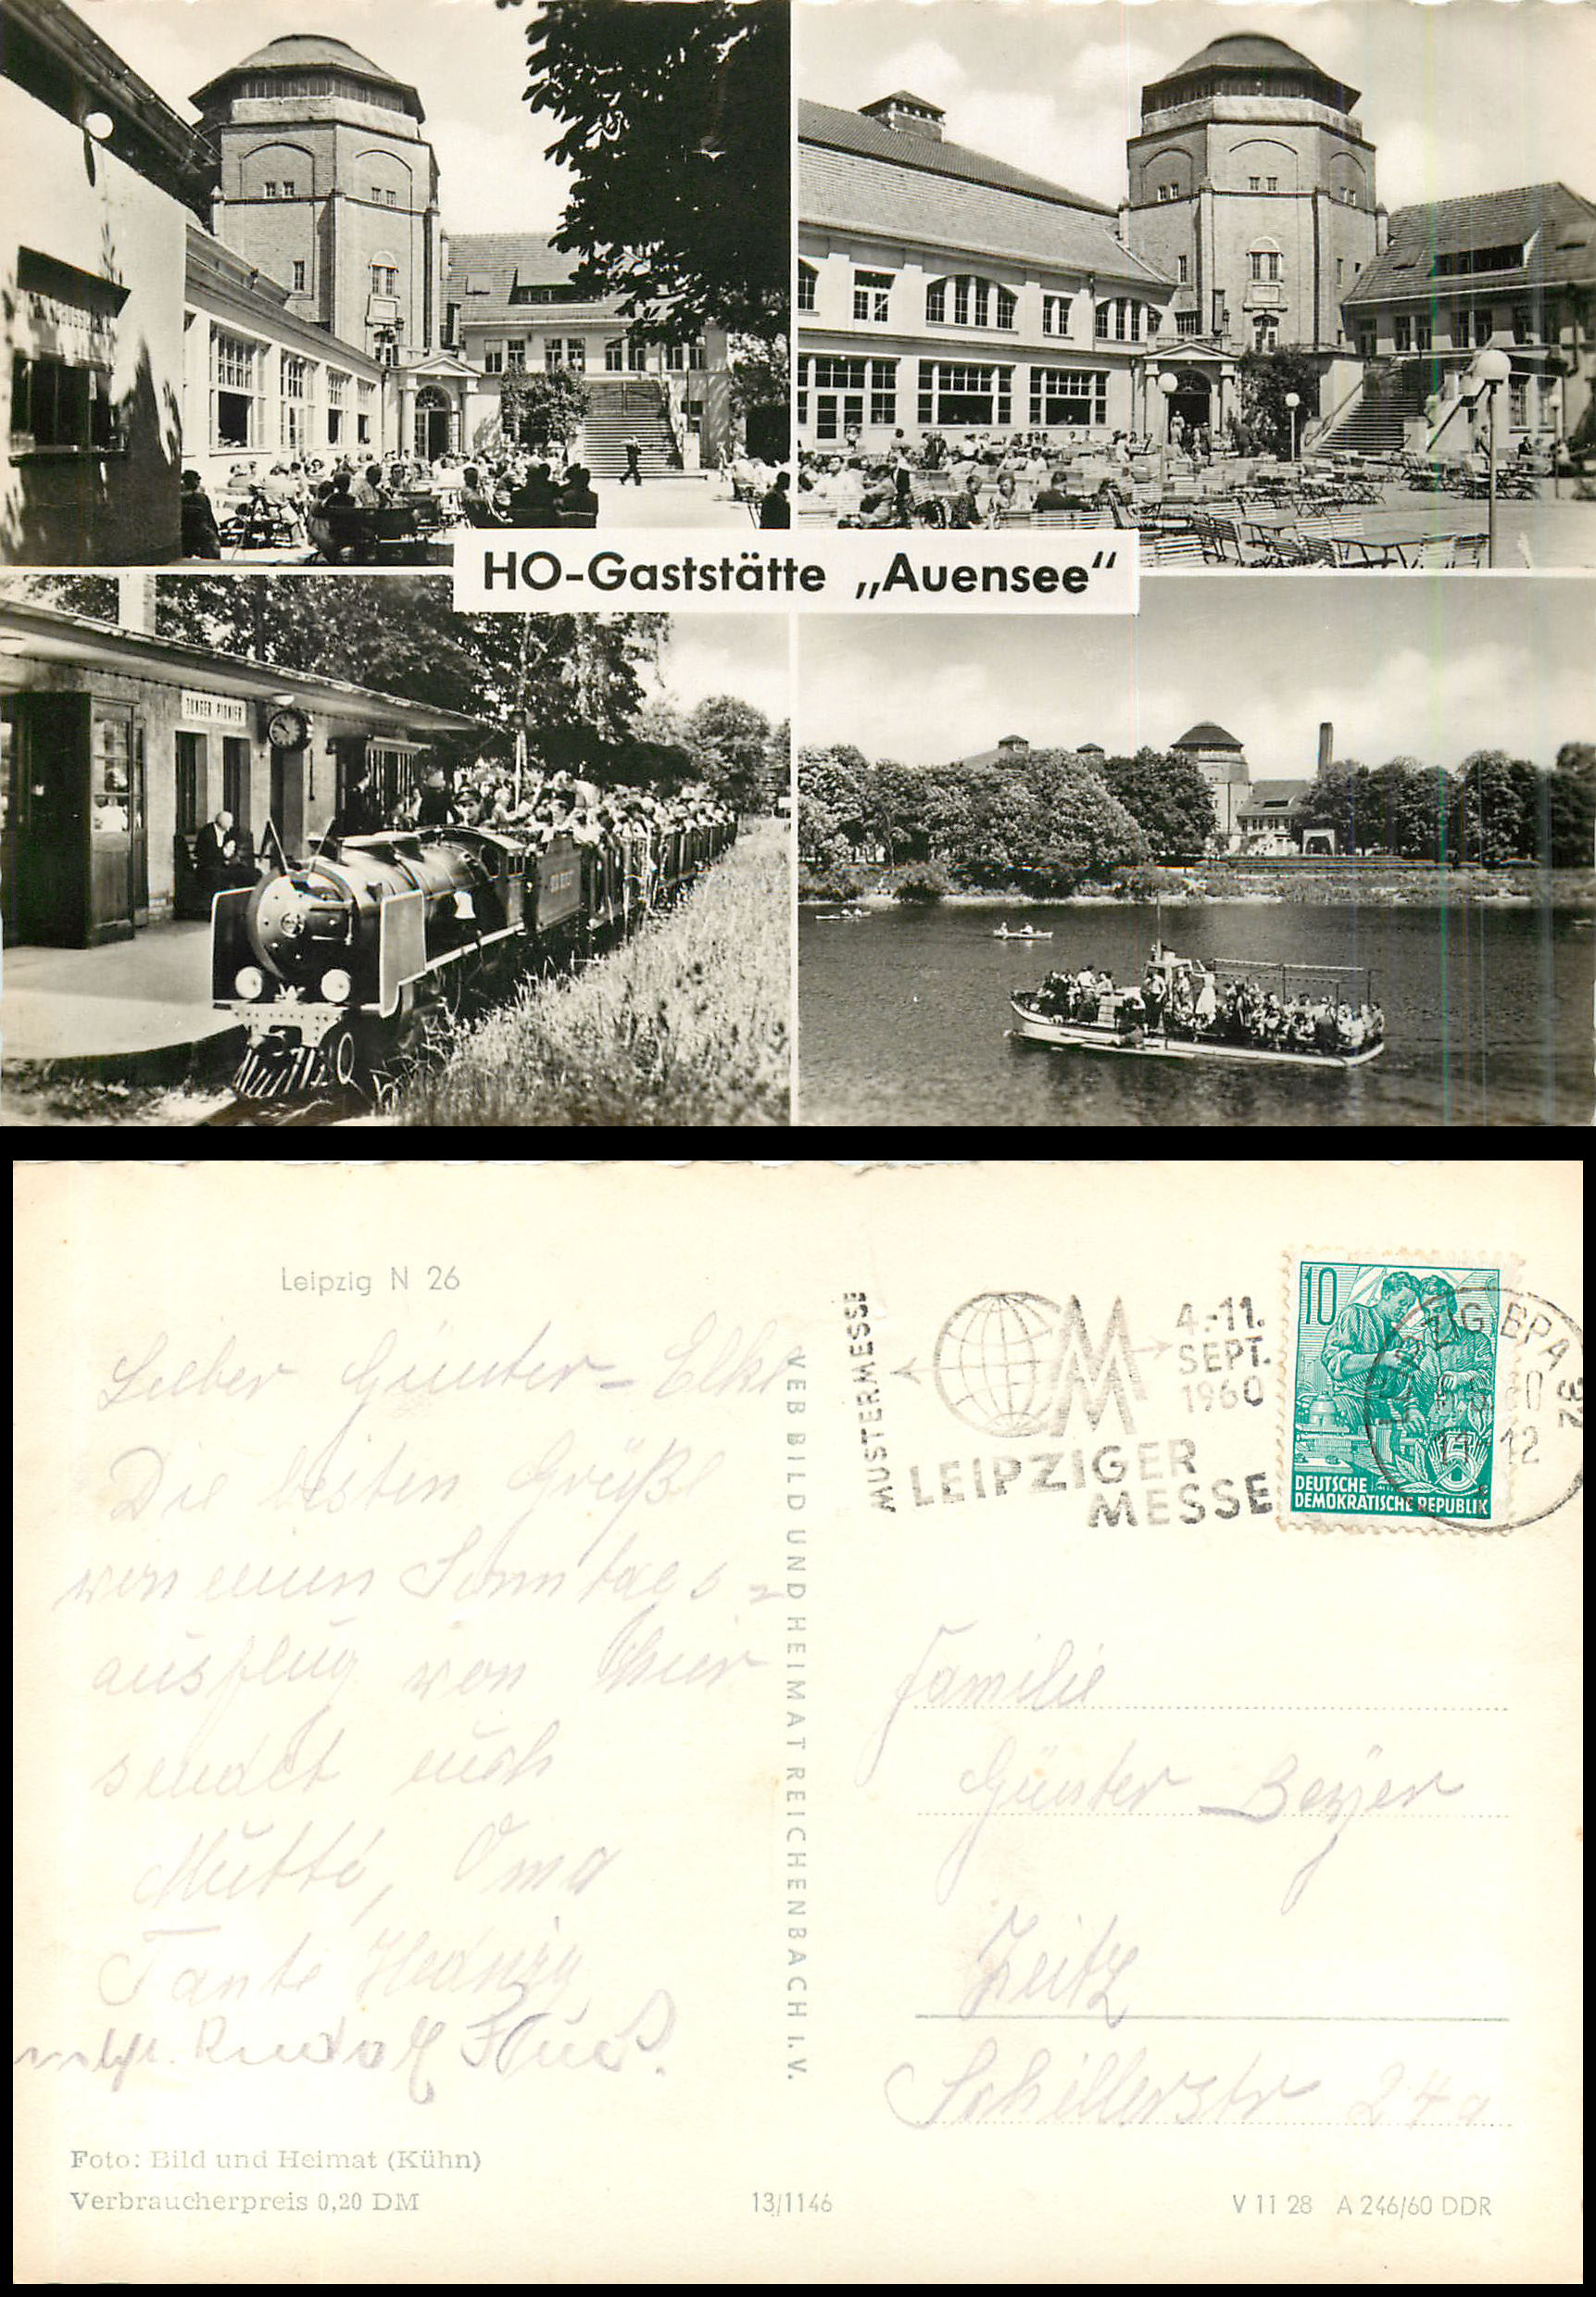 HO-Gaststätte „Auensee“
JUNGER PIONIER
Leipzig N 26
Lieber Günter =
Die besten Grüße
von einen Sonntags =
ausflug von hier
sendet euch
Mutti, Oma
Tante
Rudolf
VEB BILD UND HEIMAT REICHENBACH I. V.
MUSTERMESSE
4.-11.
SEPT.
1960
LEIPZIGER
MESSE
LEIPZIG BPA 32
10
DEUTSCHE
DEMOKRATISCHE REPUBLIK
Familie
Günter Beyer
Zeitz
Schillerstr 24a
Foto: Bild und Heimat (Kühn)
Verbraucherpreis 0,20 DM
13/1146
V 11 28 A 246/60 DDR